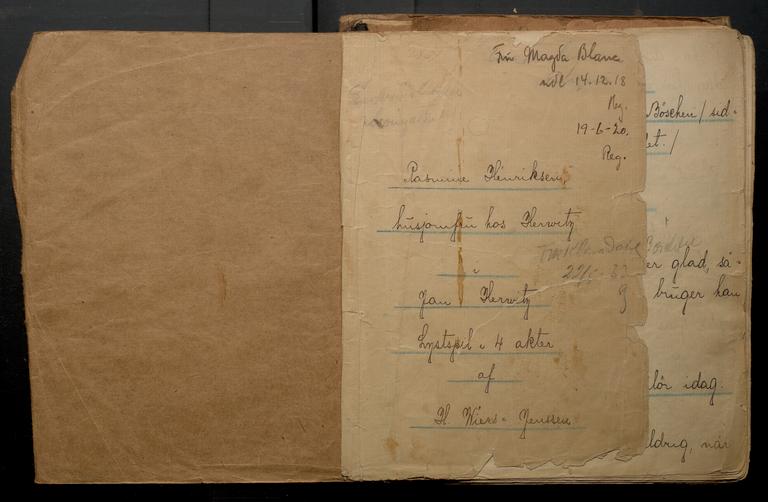 Fru Magda Blanc
indl 14.12.18
Reg.
19-6-20.
Reg.
Rasmine Henriksen,
husjomfru hos Herwitz
i
Jan Herwitz
Lystspil i 4 akter
af
H. Wiers-Jenssen
22/5
Böschen/ sid-
et./
er glad, så-
bruger han
lör idag.
ldrig, når